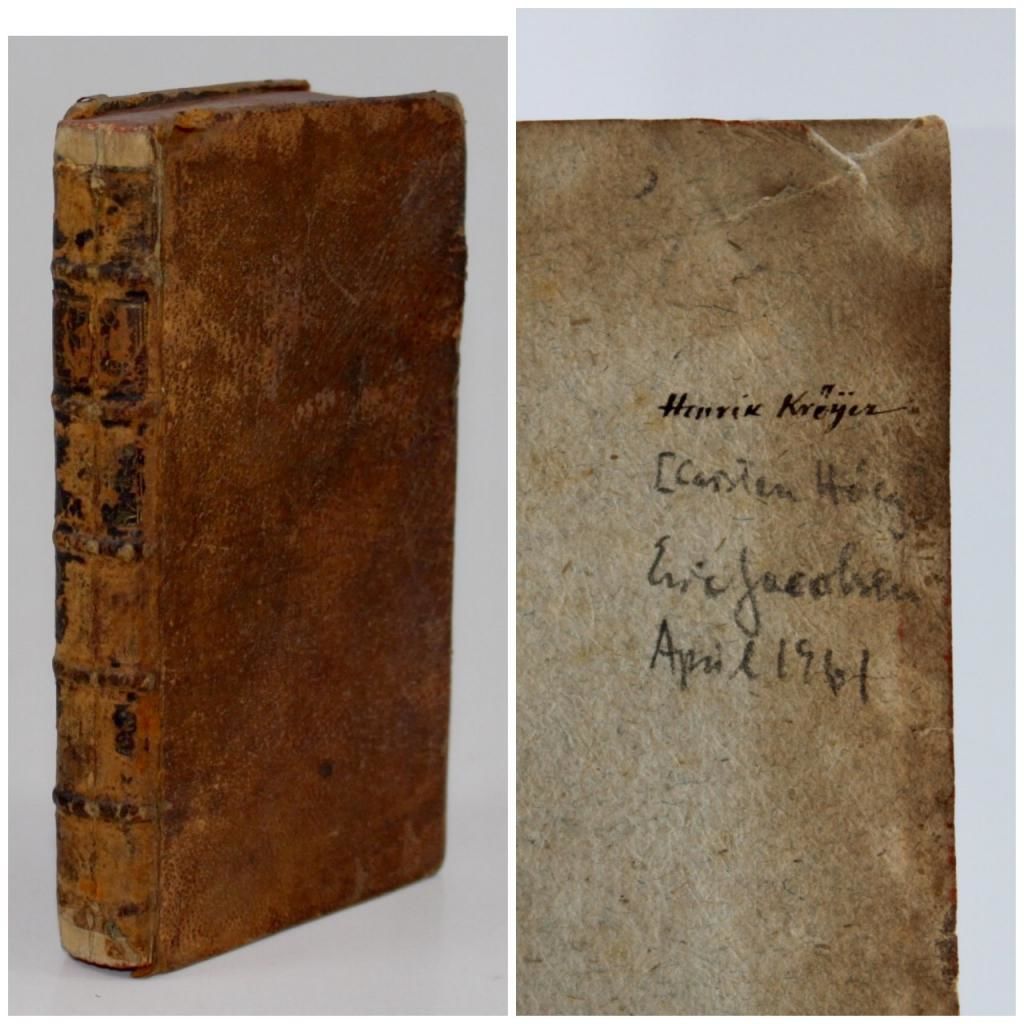 Henrik Krøÿer
[Carsten Høeg]
Eric Jacobsen
April 1961